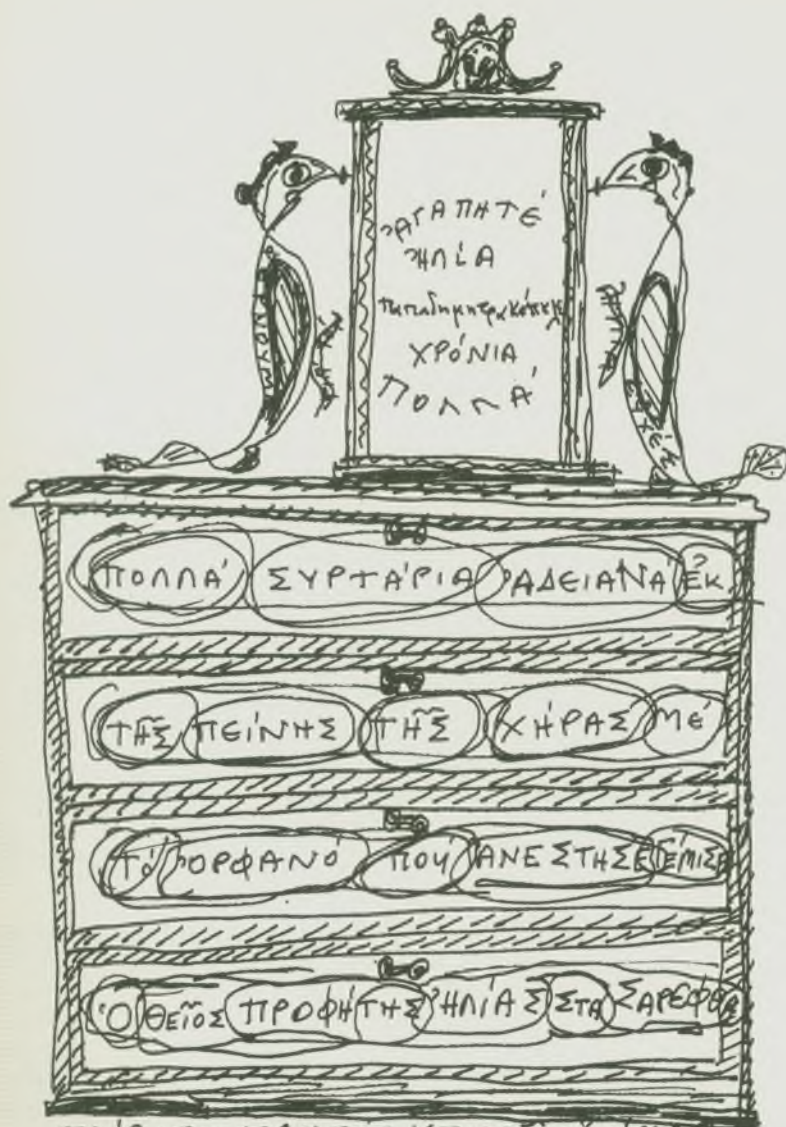 ἈΓΑΠΗΤΕ΄
ἨΛΊΑ
Παπαδημητρακόπουλε
ΧΡΌΝΙΑ
ΠΟΛΛΆ
ΠΟΛΛΆ ΣΥΡΤΆΡΙΑ ἈΔΕΙΑΝΑ΄ ἘΚ
ΤΗ͂Σ ΠΕΊΝΗΣ ΤΗ͂Σ ΧΉΡΑΣ ΜΈ
ΤΌ ὈΡΦΑΝΌ ΠΟΎ ΑΝΕΣΤΗΣΕ ΓΈΜΙΣΕ
Ὁ ΘΕΙ͂ΟΣ ΠΡΟΦΉΤΗΣ ἨΛΊΑΣ ΣΤΑ ΣΑΡΕΦΘΑ